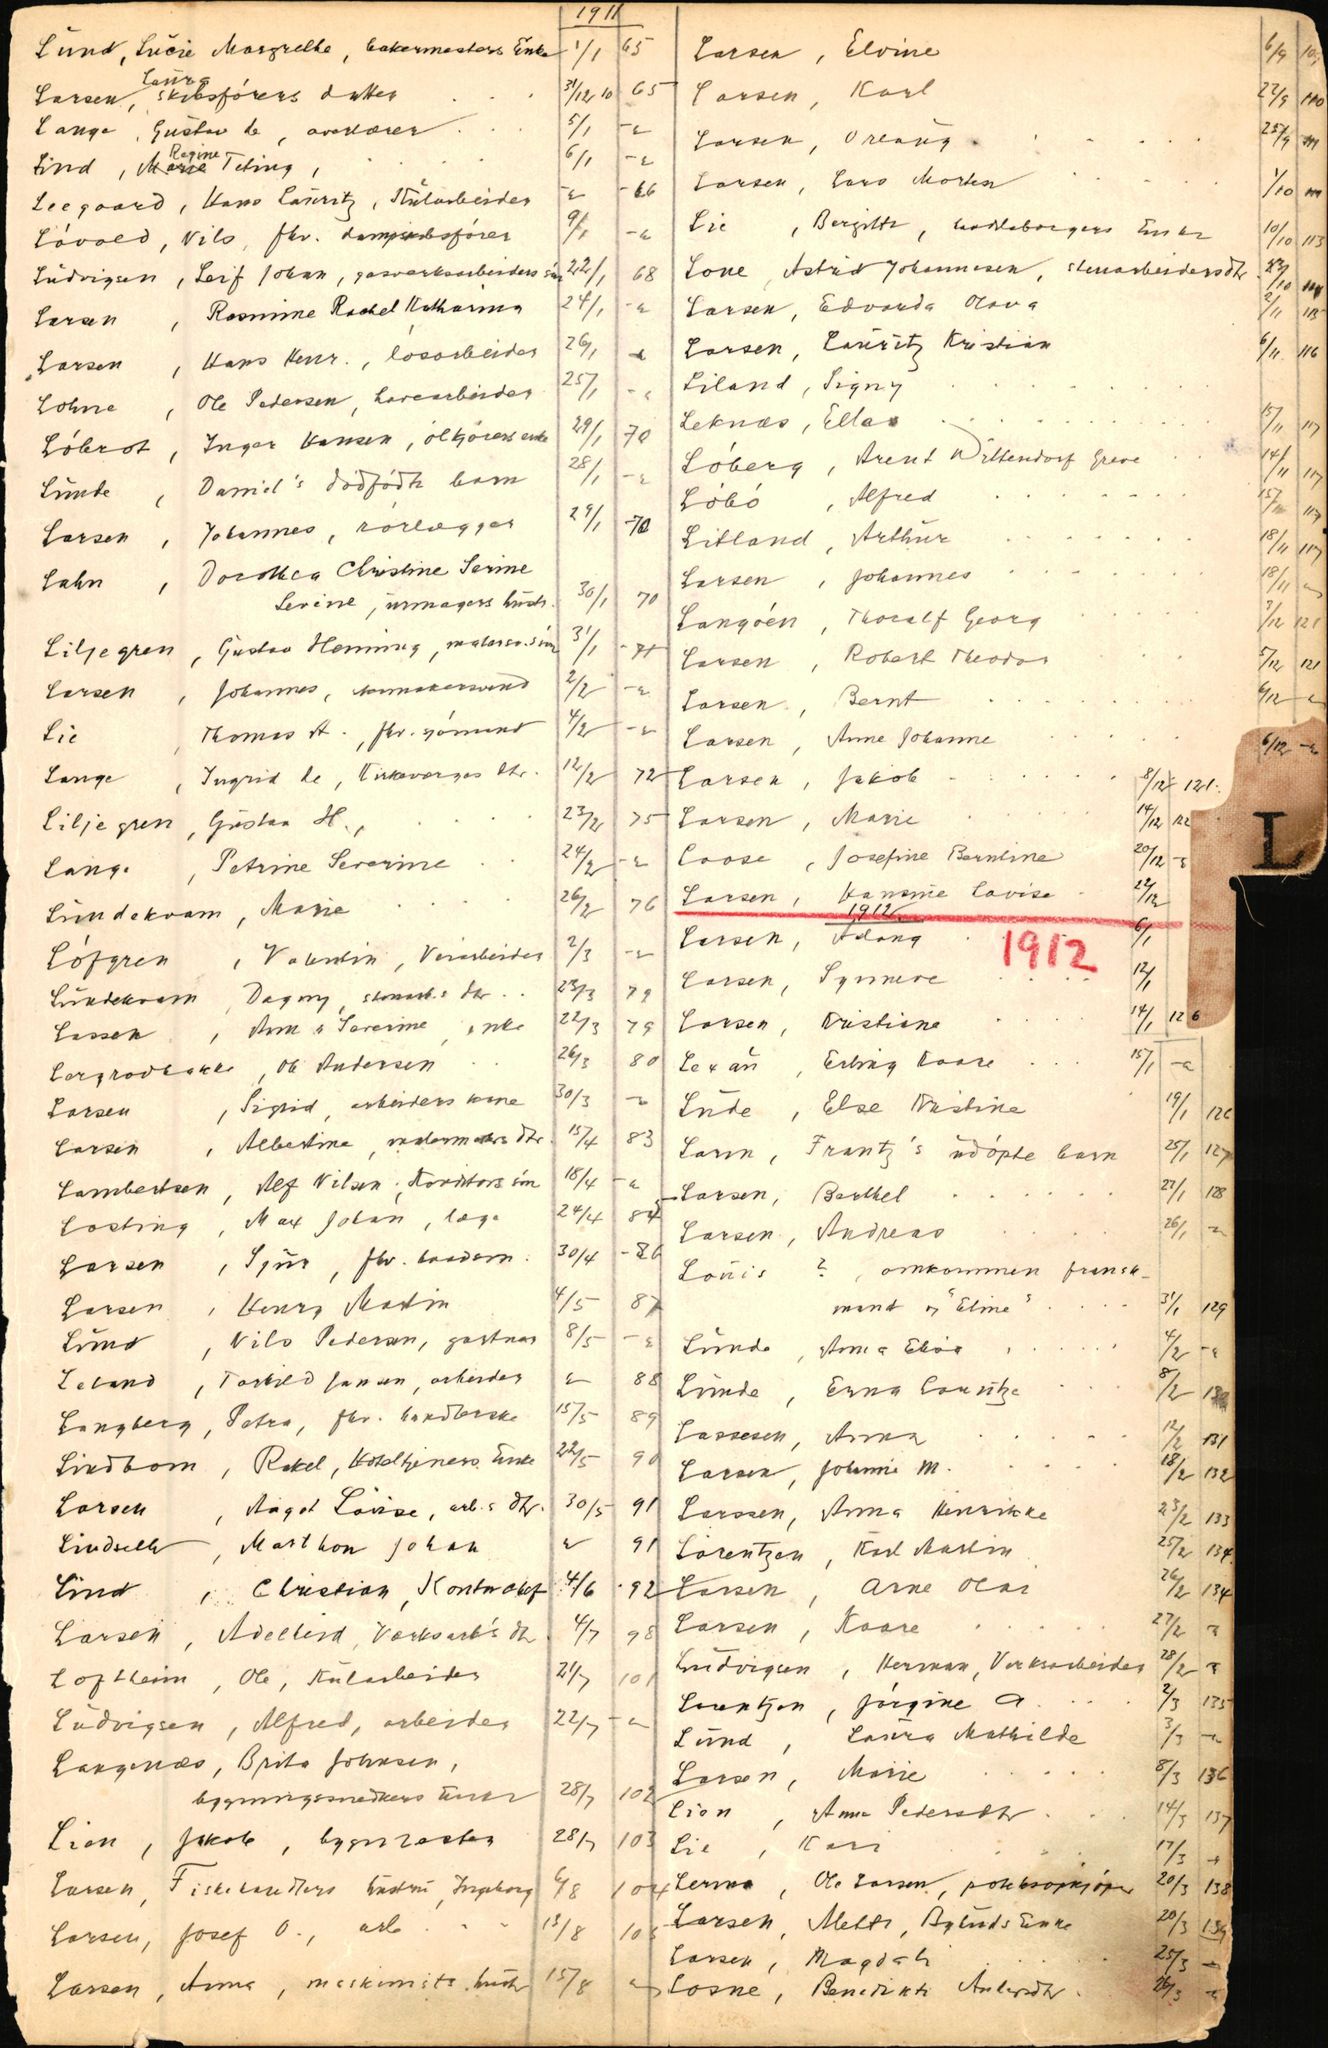 1911
Lund, Lucie Margrethe, bakermesters Enke 1/1 65
Laura
Larsen, skibsførers datter 31/12 10 65
Lange, Gustav de, 5/1 -"-
Regine
Lind, Marie Teting, 6/1 -"-
Leegaard, Hans Lauritz, Kularbeider -"- 66
Løvold, Nils, fhv. dampskibsfører 9/1 -"-
Ludvigsen, Leif Johan, gasverksarbeiders søn 22/1 68
Larsen, Rasmine Rachel Katharina 24/1 -"-
Larsen, Hans Henr., løsarbeider 26/1 -"-
Lohne, Ole Pedersen, havearbeider 25/1 -"-
Løbrot, Inger Hansen, ølkjørers enke 29/1 70
Lunde, Daniel's dødfødte barn 28/1 -"-
Larsen, Johannes, rørlægger 29/1 70
Lahn, Dorothea Christine Serine
Serine, urmagers hustr. 30/1 70
Liljegren, Gustav Henning, malers søn 31/1 71
Larsen, Johannes, 2/2 -"-
Lie, Thomas A., fhv. sømand 4/2 -"-
Lange, Ingrid de, Kirkeverges dtr. 12/2 72
Liljegren, Gustav H., 23/2 75
Lange, Petrine Severine 24/2 -"-
Lundekvam, Marie 26/2 76
Löfgren, Valentin, Veiarbeider 2/3 -"-
Lundekvam, Dagny, stenarb.s dtr. 23/3 79
Lassen, Anna Severine, enke 22/3 79
Ole Andersen 26/3 80
Larsen, Sigrid, arbeiders kone 30/3 -"-
Larsen, Albertine, malermesters dtr. 15/4 83
Lambertsen, Alf Nilsen, Konditors søn 18/4 -"-
Lasting, Max Johan, læge 24/4 84
Larsen, Sjur, fhv. baadsm. 30/4 86
Larsen, Henry Martin 4/5 87
Lund, Nils Pedersen, gartner 8/5 -"-
Leland, Torkild Jansen, arbeider -"- 88
Langberg, Petra, fhv. handlerske 15/5 89
Lindbom, Rakel, Hoteltjeners Enke 22/5 90
Larsen, Aagot Lovise, arb.s dtr. 30/5 91
Lindseth, Marthon Johan -"- 91
Lind, Christian, Kontorchef 4/6 92
Larsen, Adelleid, Verksarb's dtr. 4/7 98
Loftheim, Ole, Kularbeider 21/7 101
Ludvigsen, Alfred, arbeider 22/7 -"-
Langenæs, Brita Johnsen,
bygningssnedkers Enke 28/7 102
Lien, Jakob, 28/7 103
Larsen, Fiskehandlers hustru, Ingeborg 6/8 104
Larsen, Josef O., arb. 13/8 105
Larsen, Anna, maskinists hustr. 15/8 -"-
Larsen, Elvine 6/9 109
Larsen, Karl 22/9 110
Larsen, Orlaug 25/9 111
Larsen, Lars Morten 1/10 111
Lie, Bergitte, Enke 10/10 113
Lone, Astrid Johannesen, stenarbeidersdtr. 22/10 114
Larsen, Edvarda Olava 2/11 115
Larsen, Lauritz Kristian 6/11 116
Liland, Signy
Leknæs, Ella 15/11 117
Løberg, Arent Wittendorf Greve 14/11 117
Løbø, Alfred 15/11 117
Litland, Arthur 18/11 117
Larsen, Johannes 18/11 -"-
Langøen, Thoralf Georg 3/12 121
Larsen, Robert Theodor 5/12 121
Larsen, Bernt 6/12 -"-
Larsen, Anne Johanne 6/12 -"-
Larsen, Jakob 8/12 121
Larsen, Marie 14/12 122
Loose, Josefine Berntine 20/12 -"-
Larsen, Hansine Lovise 22/12
L
1912
Larsen, Adang 6/1
1912
Larsen, Synneve 12/1
Larsen, Kristiane 14/1 126
Lexau, Erling Kaare 15/1 -"-
Lude, Else Kristine 19/1 126
Larm, Frantz's udøpte barn 25/1 127
Larsen, Barthel 27/1 128
Larsen, Andreas 26/1 -"-
Louis ?, omkommen fransk-
mand og "Eline" 31/1 129
Lunde, Anna Elisa 4/2 -"-
Lunde, Erna Lauritze 8/2 130
Lassesen, Anna 12/2 131
Larsen, Johanne M. 18/2 132
Larssen, Anna Henrikke 23/2 133
Lorentzen, Karl Martin 25/2 134
Larsen, Arne Olai 26/2 134
Larsen, Kaare 27/2 -"-
Ludvigsen, Herman, Verksarbeider 28/2 -"-
Lorentzen, Jørgine A. 2/3 135
Lund, Laura Mathilde 3/3 -"-
Larsen, Marie 8/3 136
Lien, Anna Pedersdtr. 14/3 137
Lie, Kari 17/3 -"-
Lerme, Ole Larsen, 20/3 138
Larsen, Mette, Enke 20/3 139
Larsen, Magdali 25/3 -"-
Losne, Benedikte 26/3 -"-